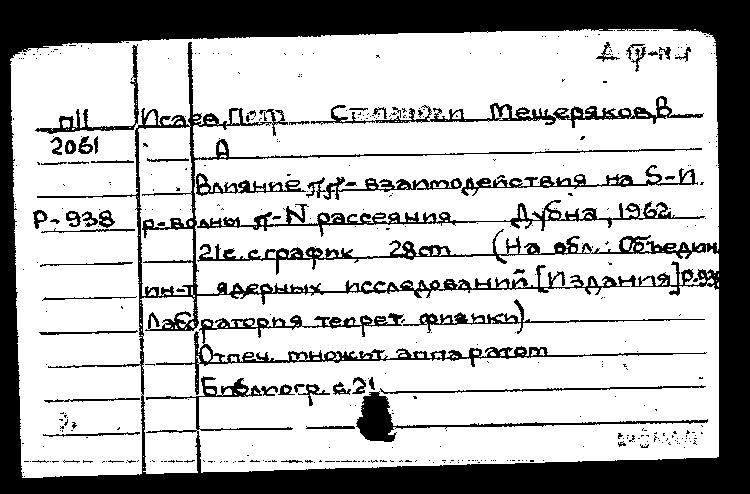 П11 Исаев, Петр Степанович и Мещеряков, В
2061 А
Влияние ππ - взаимодействия на S- и
Р-938 р-волны π-N рассеяния. Дубна, 1962
21с. с график. 28cm (На обл.: Объедин.
ин-т ядерных исследований. [Издания] Р-938
Лаборатория теорет. физики).
Отпеч. множит. аппаратом
Библиогр. с.21.